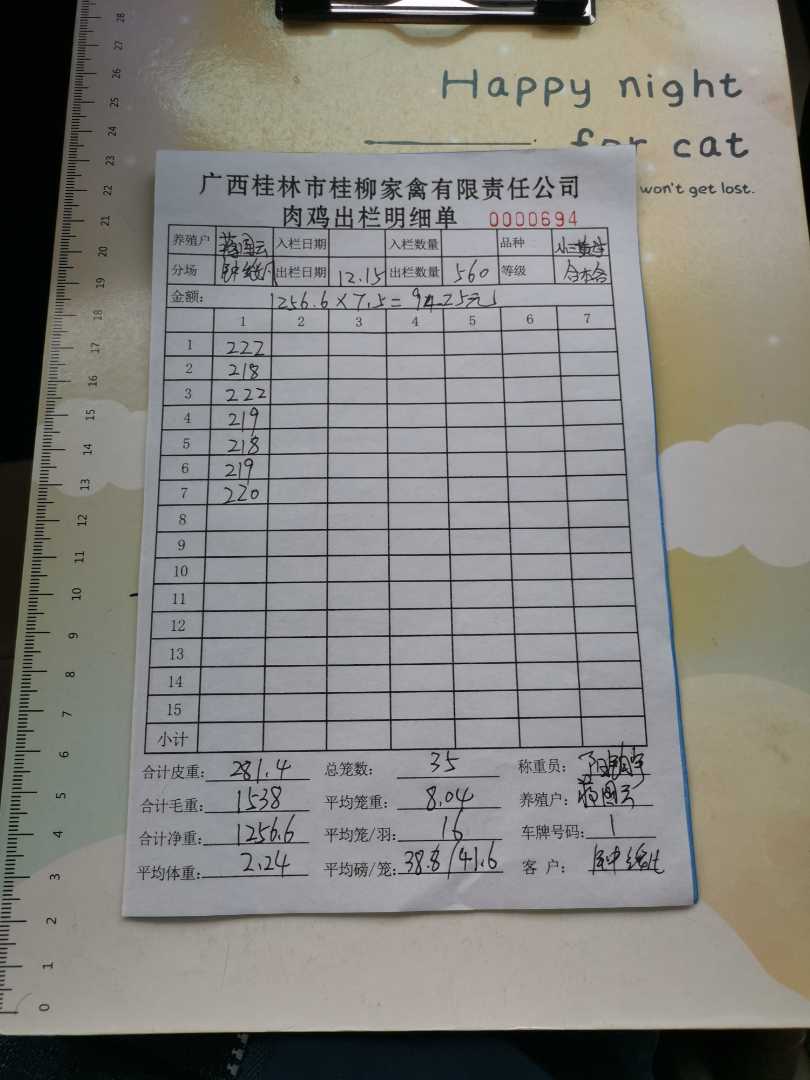 Happy night
for cat
won't get lost.
广西桂林市桂柳家禽有限责任公司
肉鸡出栏明细单 0000694
养殖户 入栏日期 入栏数量 品种
分场 出栏日期 12.15 出栏数量 560 等级
金额: 1256.6×7.5=9425元
1 2 3 4 5 6 7
1 222
2 218
3 222
4 219
5 218
6 219
7 220
8
9
10
11
12
13
14
15
小计
合计皮重: 281.4 总笼数: 35 称重员:
合计毛重: 1538 平均笼重: 8.04 养殖户:
合计净重: 1256.6 平均笼/羽: 16 车牌号码: 1
平均体重: 2.24 平均磅/笼: 38.8/41.6 客 户:
28
27
26
25
24
23
22
21
20
19
18
17
16
15
14
13
12
11
10
9
8
7
6
5
4
3
2
1
0